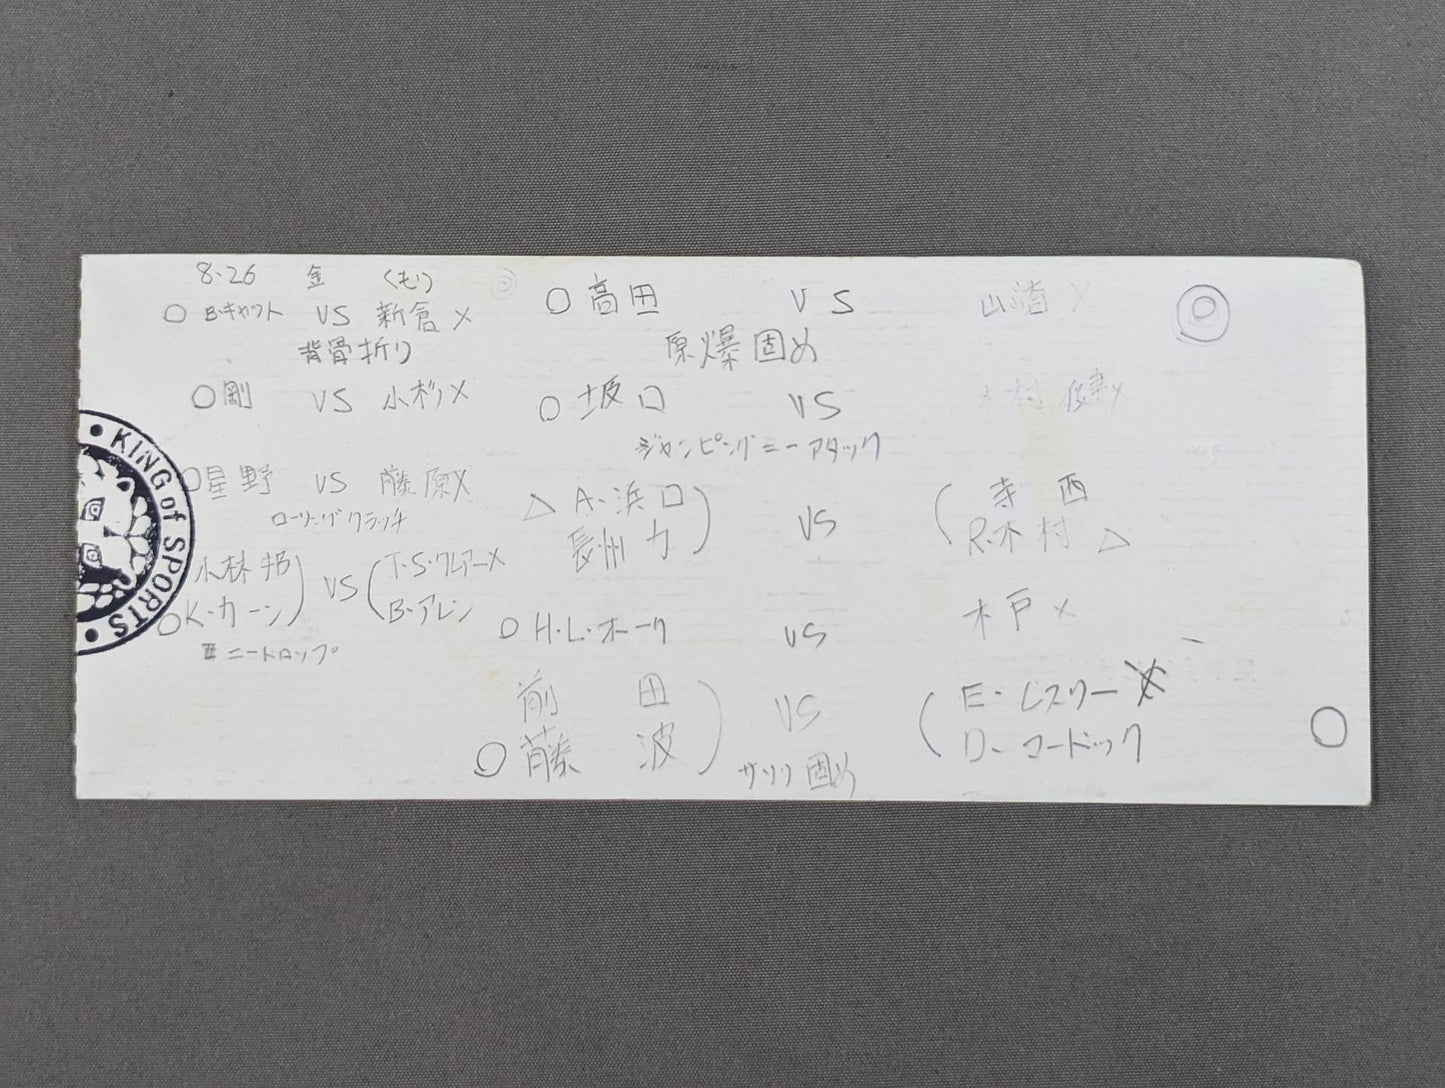 8・26 金 (もり)
○ B・キャット VS 新倉 ×
背骨折り
○剛 VS 小杉×
○星野 VS 藤原×
ローリングクラッチ
小林邦
○K・カーン) VS (T・S・クレアー×
B・アレン
ニードロップ
○ 高田 VS 山崎 ×
原爆固め
○ 坂口 VS 木村 健×
ジャンピングニーアタック
△ A・浜口
長州 力) VS (寺西
R・木村 △
○ H・L・ホーク VS 木戸 ×
前田
○ 藤波) VS (E・レスリー ×
D・マードック
サソリ固め
KING of SPORTS